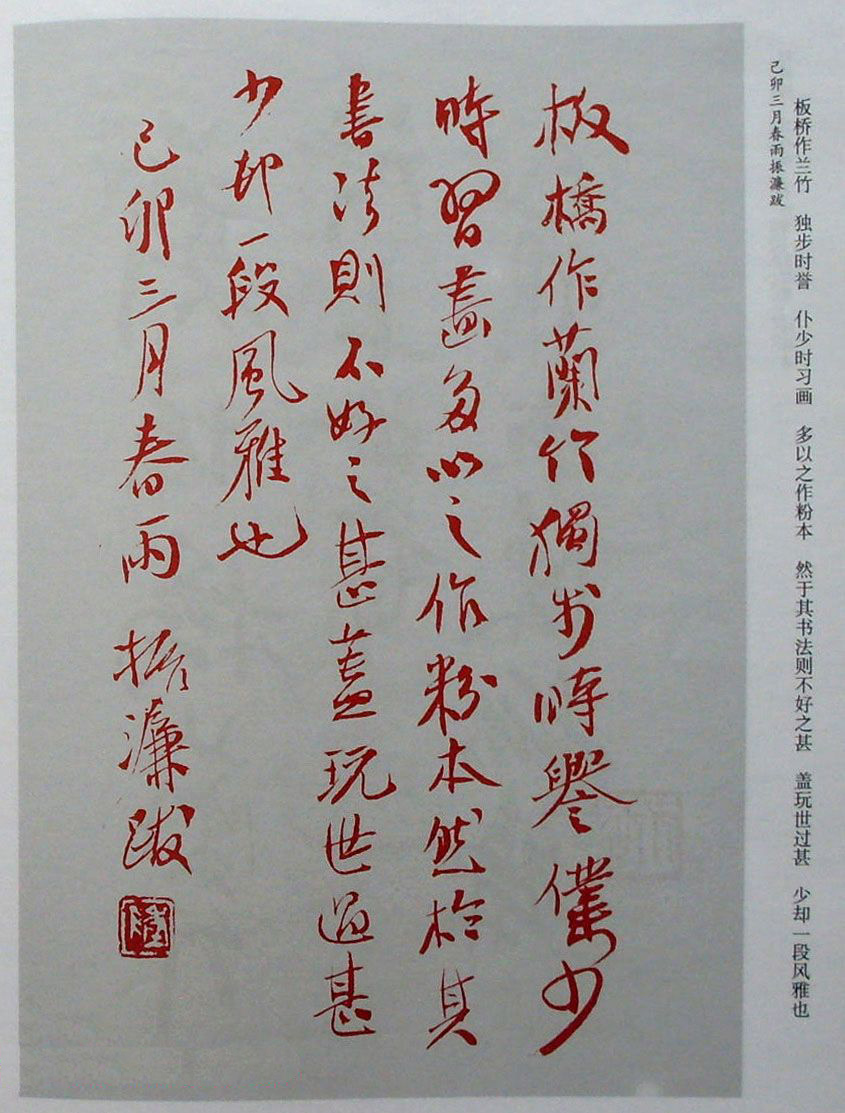 板桥作兰竹 独步时誉 仆少时习画 多以之作粉本 然于其书法则不好之甚 盖玩世过甚 少却一段风雅也
己卯三月春雨振濂跋
板橋作蘭竹獨步時譽僕少
時習畫多以之作粉本然於其
書法則不好之甚蓋玩世過甚
少却一段風雅也
己卯三月春雨 振濂跋